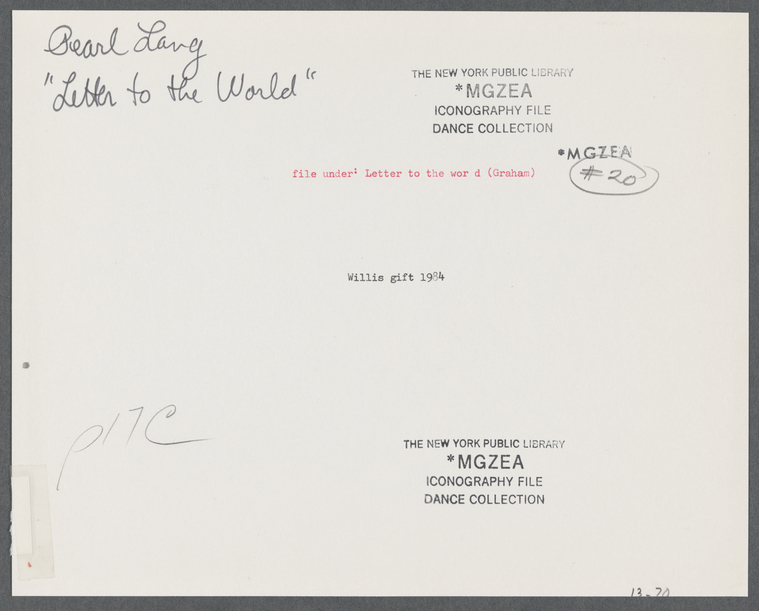 Pearl Lang
"Letter to the World"
THE NEW YORK PUBLIC LIBRARY
*MGZEA
ICONOGRAPHY FILE
DANCE COLLECTION
*MGZEA
#20
file under: Letter to the wor d (Graham)
Willis gift 1984
p17C
THE NEW YORK PUBLIC LIBRARY
*MGZEA
ICONOGRAPHY FILE
DANCE COLLECTION